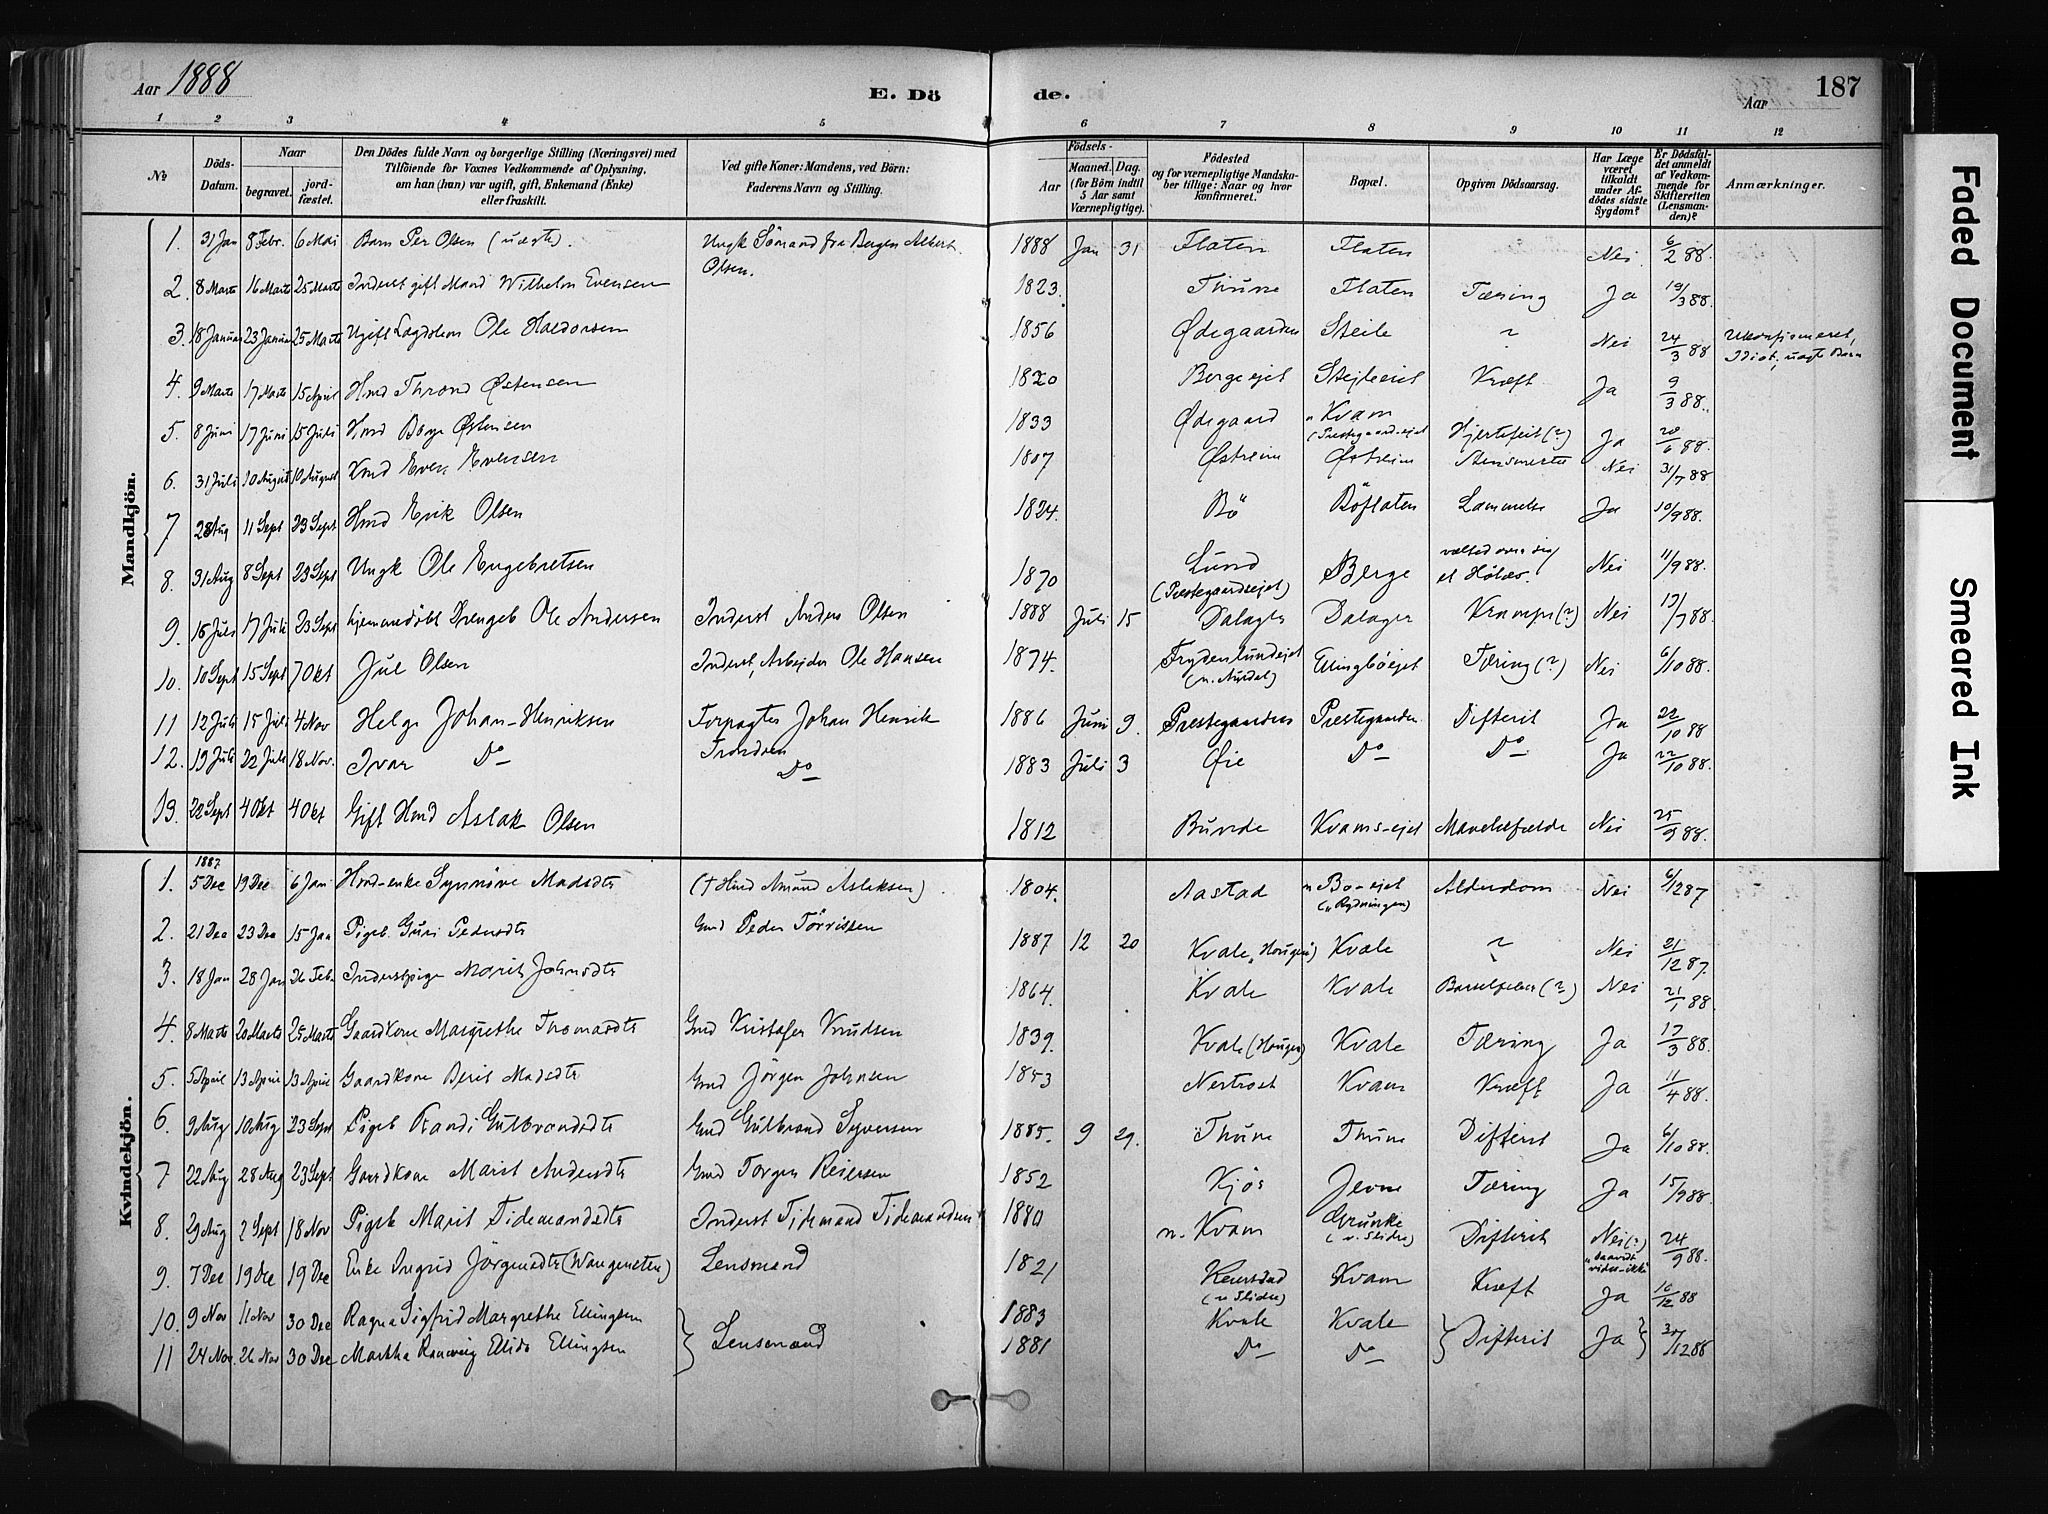 Aar 1888
E. Dö
de.
Aar
187
1 2 3 4 5 6 7 8 9 10 11 12
No
Döds-Datum.
Naar
begravet.
jord-fæstet.
Den Dödes fulde Navn og borgerlige Stilling (Næringsvei) med
Tilföiende for Voxnes Vedkommende af Oplysning,
om han (hun) var ugift, gift, Enkemand (Enke)
eller fraskilt.
Ved gifte Koner: Mandens, ved Börn:
Faderens Navn og Stilling.
Födsels-
Aar
Maaned. Dag.
(for Börn indtil
5 Aar samt
Værnepligtige).
Födested
og for værnepligtige Mandska-
ber tillige: Naar og hvor
konfirmeret.
Bopæl.
Opgiven Dödsaarsag.
Har Læge
været
tilkaldt
under Af-
dödes sidste
Sygdom?
Er Dödsfal-
det anmeldt
af Vedkom-
mende for
Skifteretten
(Lensman-
den)?
Anmærkninger.
Mandkjön.
1. 31 Jan 8 Febr. 6 Mai Barn Per Olsen (uægte). Ungk Sömand fra Bergen Albert Olsen. 1888 Jan 31 Flaten Flaten Nei 6/2 88.
2. 8 Marts 16 Marts 25 Marts Inderst gift Mand Wilhelm Evensen 1823. Thune Flaten Tæring Ja 19/3 88.
3. 18 Januar 23 Januar 25 Marts Ugift Lægdslem Ole Haldorsen 1856 Ødegaarden Steile ~ Nei 24/3 88 Ukonfirmeret, Idiot, uægte Barn
4. 9 Marts 17 Marts 15 April Hmd Thrond Østensen 1820 Berge ejet Stejleeiet Kræft Ja 9/3 88.
5. 8 Juni 17 Juni 15 Juli Hmd Børge Østensen 1833 Ødegaard " Kvam (Prestegaardsejet Hjertefeil (?) Ja 20/6 88.
6. 31 Juli 10 August 10 August Kmd Even Evensen 1807 Østreim Østreim Stensmerte Nei 31/7 88
7 28 Aug 11 Sept 23 Sept Hmd Erik Olsen 1824. Bö Böflaten Lammelse Ja 10/9 88.
8. 31 Aug 8 Sept 23 Sept Ungk Ole Engebretsen 1870 Lund (Prestegaardsejet) Berge vælted over sig et Hölæs. Nei 11/9 88.
9. 16 Juli 17 Juli 23 Sept hjemmedöbt Drengeb Ole Andersen Inderst Anders Olsen 1888 Juli 15 Dalager Dalager Krampe (?) Nei 17/7 88.
10. 10 Sept 15 Sept 7 Okt Jul Olsen Inderst, Arbejder Ole Hansen 1874. Frydenlundejet (n. Aurdal) Ellingböejet Tæring (?) Nei 6/10 88.
11 12 Juli 15 Juli 4 Nov Helge Johan-Henriksen Forpagter Johan Henrik 1886 Juni 9. Prestegaarden Prestegaarden Difterit Ja 22/10 88
12. 19 Juli 22 Juli 18 Nov. Ivar Do Do 1883 Juli 3 Øie Do Do Ja 22/10 88.
13. 22 Sept 4 Okt 4 Okt Gift Hmd Aslak Olsen 1812 Bunde Kvams-ejet Nei 25/9 88.
Kvindekjön.
1. 1887 5 Dec 19 Dec 6 Jan Hmd-enke Synnöve Madsdtr († Hmd Amund Aslaksen) 1804. Aastad " Bö-ejet (" Rydningen) Alderdom Nei 6/12 87
2. 21 Dec 23 Dec 15 Jan Pigeb. Guri Pedersdtr Gmd Peder Törrissen 1887 12 20 Kvale "Hougen) Kvale ~ Nei 21/12 87.
3. 18 Jan 28 Jan 26 Feb. Inderstpige Marit Johnsdtr 1864. Kvale Kvale Barselfeber (?) Nei 21/1 88
4. 8 Marts 20 Marts 25 Marts Gaardkone Margrethe Thomasdtr Gmd Kristofer Knudsen 1839. Kvale (Hougen) Kvale Tæring Ja 17/3 88.
5. 5 April 13 April 13 April Gaardkone Berit Madsdtr Gmd Jörgen Johnsen 1853 Nertrost Kvam Kræft Ja 11/4 88.
6. 9 Aug 10 Aug 23 Sept Pigeb Randi Gulbrandsdtr Gmd Gulbrand Syversen 1885. 9 29. Thune Thune Difterit Ja 6/10 88.
7 22 Aug 28 Aug 23 Sept Gaardkone Marit Andersdtr Gmd Torgen Reiersen 1852 Kjös Jevne Tæring Ja 15/9 88.
8. 29 Aug 2 Sept 18 Nov Pigeb Marit Tidemandsdtr Inderst Tidemand Tidemandsen 1880 n. Kvam Grunke (v. Slidre) Difterit Nei (?) 24/9 88.
9. 7 Dec 19 Dec 19 Dec Enke Ingrid Jörgensdtr (Wangensten) Lensmand 1821 (v Slidre) Kvam Kræft Ja 10/12 88
10. 9 Nov 11 Nov 30 Dec Ragna Sigfrid Margrethe Ellingsen } Lensmand 1883 Kvale Kvale } Difterit Ja } 30/12 88
11 24 Nov 26 Nov 30 Dec Martha Ranveig Elida Ellingsen 1881 Do Do
Faded Document
Smeared Ink